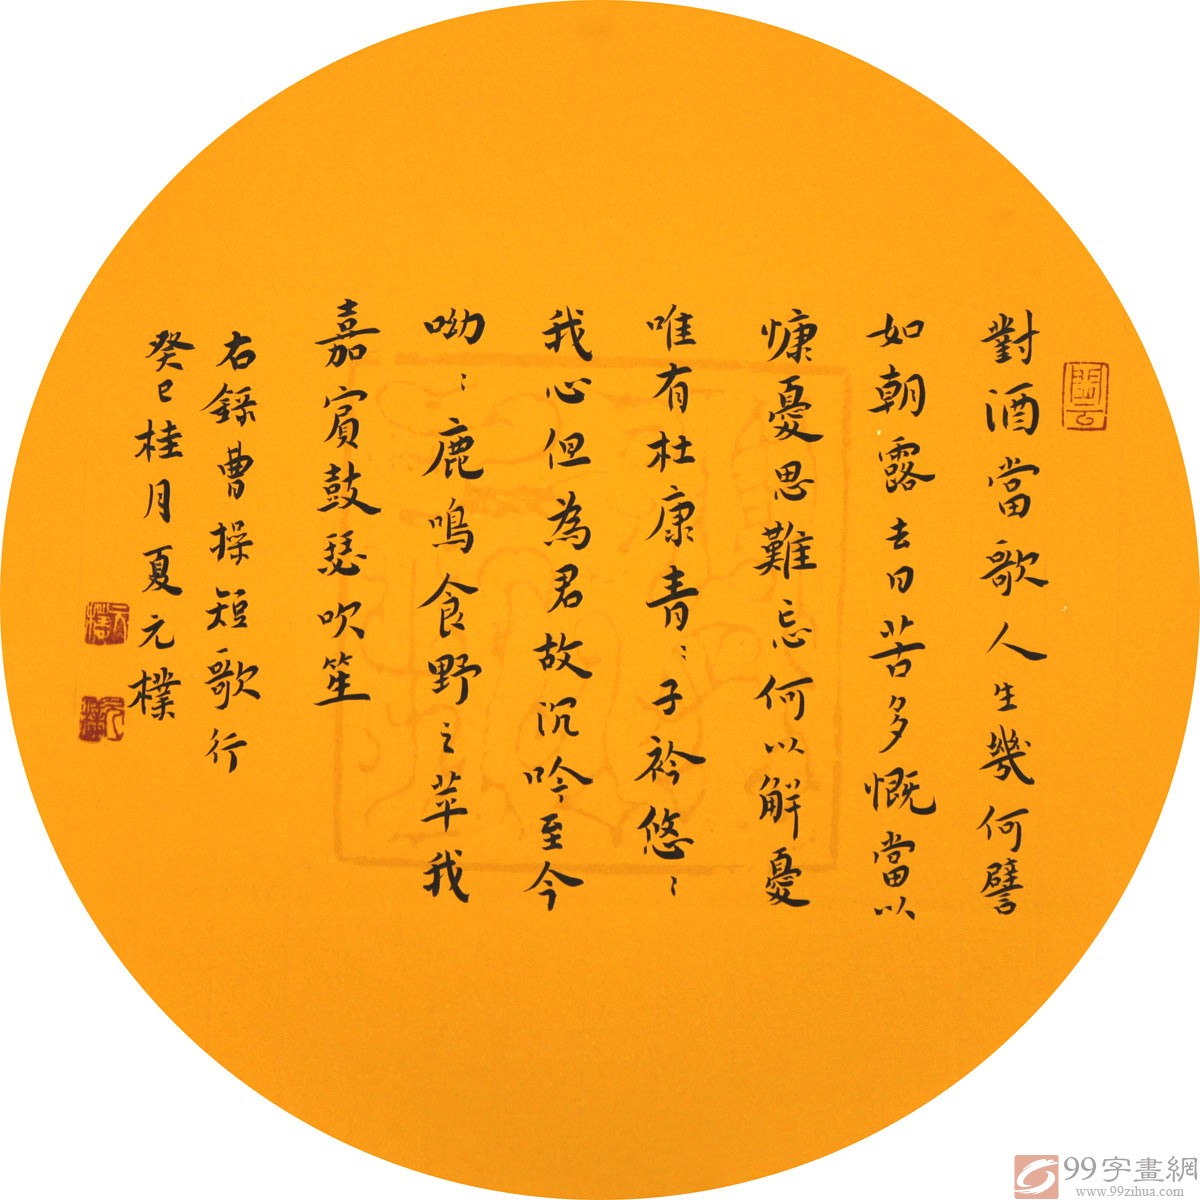 對酒當歌人生幾何譬
如朝露去日苦多慨當以
慷憂思難忘何以解憂
唯有杜康青〻子衿悠〻
我心但為君故沉吟至今
呦〻鹿鳴食野之苹我
嘉賓鼓瑟吹笙
右錄曹操短歌行
癸巳桂月夏元樸
99字畫網
www.99zihua.com